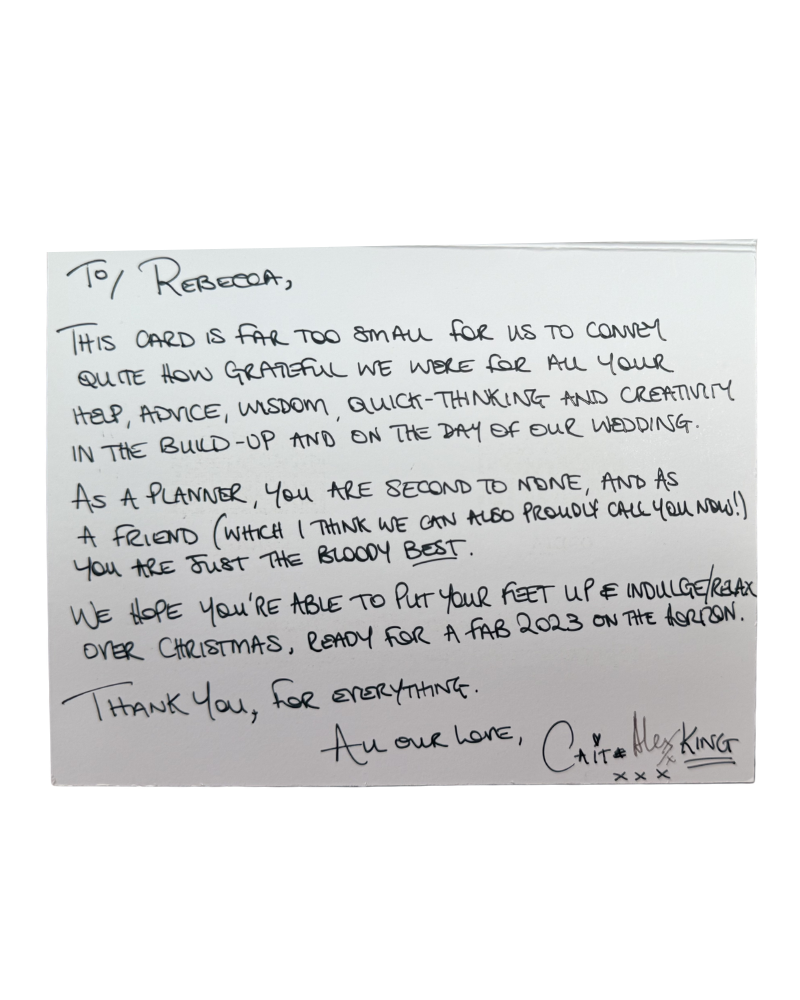 TO/ REBECCA,
THIS CARD IS FAR TOO SMALL FOR US TO CONVEY
QUITE HOW GRATEFUL WE WERE FOR ALL YOUR
HELP, ADVICE, WISDOM, QUICK-THINKING AND CREATIVITY
IN THE BUILD-UP AND ON THE DAY OF OUR WEDDING.
AS A PLANNER, YOU ARE SECOND TO NONE, AND AS
A FRIEND (WHICH I THINK WE CAN ALSO PROUDLY CALL YOU NOW!)
YOU ARE JUST THE BLOODY BEST.
WE HOPE YOU'RE ABLE TO PUT YOUR FEET UP & INDULGE/RELAX
OVER CHRISTMAS, READY FOR A FAB 2023 ON THE HORIZON.
THANK YOU, FOR EVERYTHING.
ALL OUR LOVE, CAIT & Alex x KING
x x x